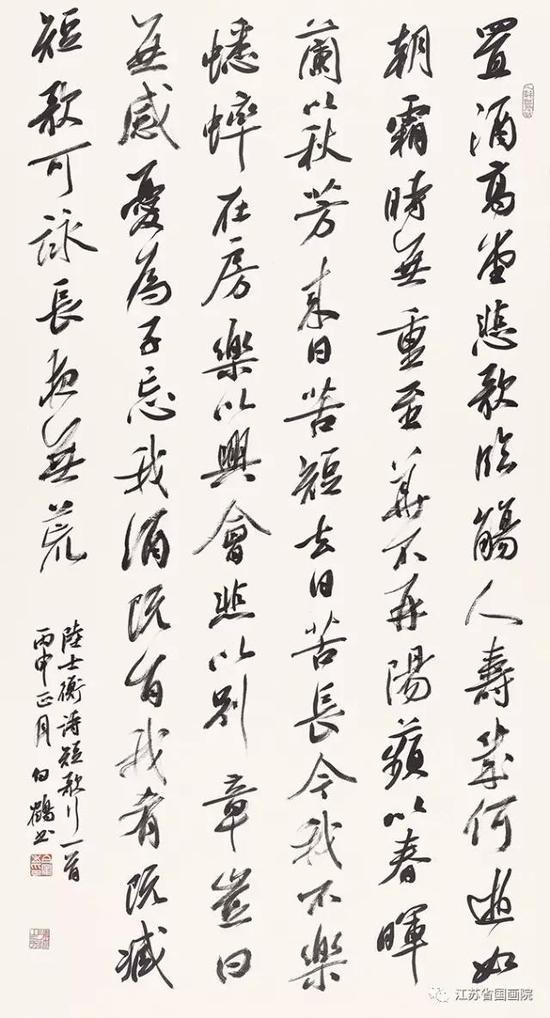 置酒高堂悲歌臨觴人壽幾何逝如
朝霜時無重至華不再陽蘋以春暉
蘭以秋芳來日苦短去日苦長今我不樂
蟋蟀在房樂以興會悲以別章豈曰
無感憂為子忘我酒既旨我肴既臧
短歌可詠長夜無荒
陸士衡詩短歌行一首
丙申正月白鶴書
江苏省国画院